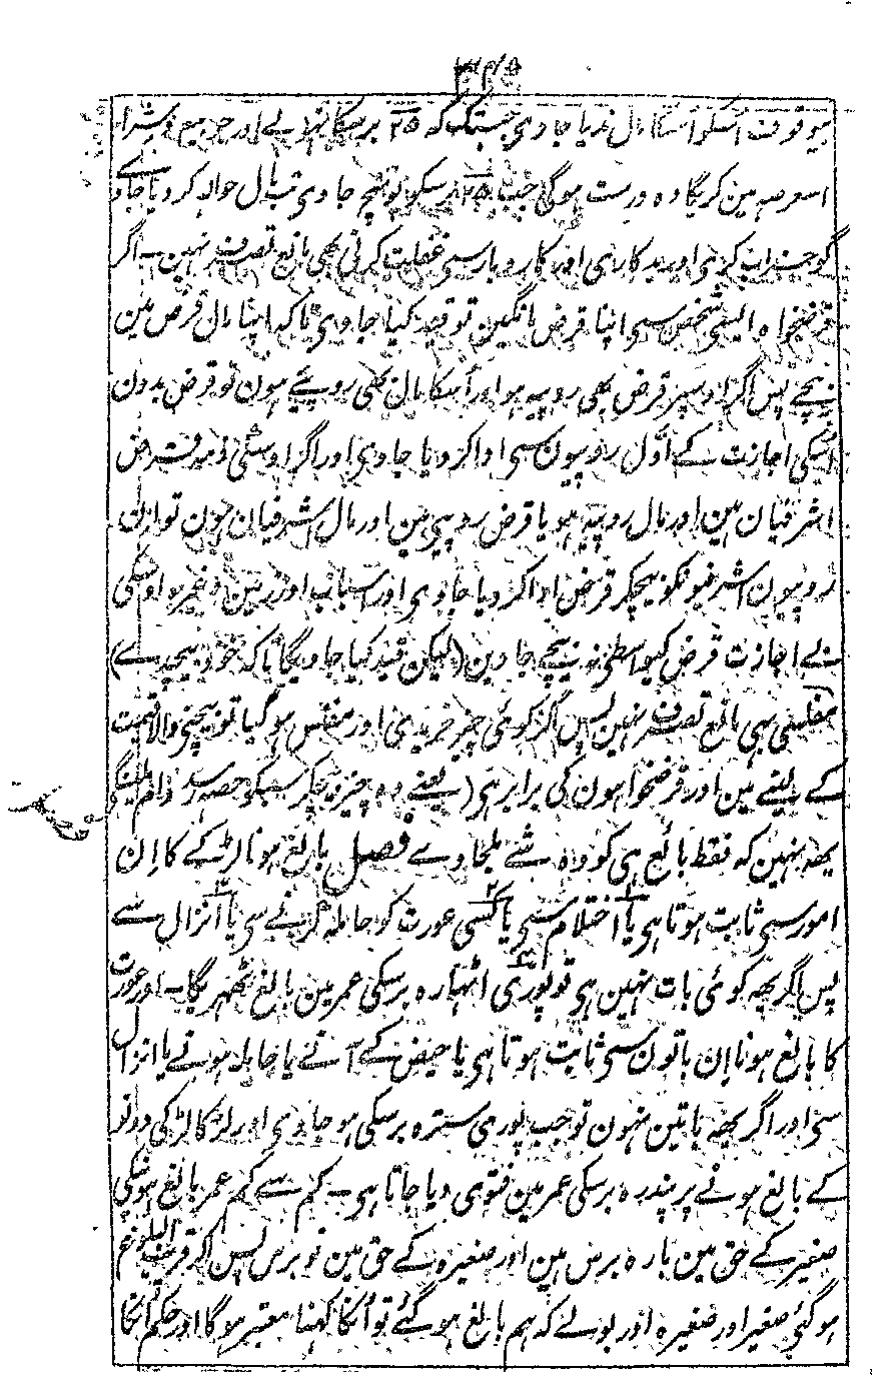 ۳۴۵
بیوقوف اسکو اسکا مال ندیا جاوی جبتک که ۲۵ برسکا نہولے اور جو بیع و شرا
اسعرصہ مین کریگا وہ درست ہوگی جب ۲۵ برسکو پہنچ جاوی تب مال حوالہ کر دیا جاوے
گو خراب کرے اور بدکاری اور کاروبار سی غفلت کرنی بھی مانع تصرف نہین۔ اگر
قرضخواہ ایسی شخص سی اپنا قرض مانگین تو قید کیا جاوی تاکہ اپنا مال قرض مین
بیچے پس اگر اوسپر قرض بھی روپیہ ہو اور اُسکا مال بھی روپئے ہون تو قرض بدون
اُسکی اجازت کے اوّل روپیون سی ادا کر دیا جاوی اور اگر اوسکی ذمہ قرض
اشرفیان ہین اور مال روپیہ ہو یا قرض روپیہ ہین اور مال اشرفیان ہون تو ان
روپیون اشرفیونکو بیچکر قرض ادا کر دیا جاوی اور اسباب اور زمین وغیرہ اوسکی
بے اجازت قرض کیواسطی نہ بیچے جاوین (لیکن قید کیا جاویگا تاکہ خود بیچدے)
مفلسی بھی مانع تصرف نہین پس اگر کوئی چیز خریدی اور مفلس ہو گیا تو بیچنی والا قیمت
کے لینے مین اور قرضخواہون کی برابر ہی (یعنے وہ چیز بیچکر سبکو حصہ رسد دام ملینگے
یہہ نہین کہ فقط بائع ہی کو وہ شے ملجاوے فصل بالغ ہونا لڑکے کا اِن
امور سی ثابت ہوتا ہی یا احتلام سی یا کسی عورت کو حاملہ کرنے سی یا انزال سے
پس اگر یہہ کوئی بات نہین ہی تو پوری اٹہارہ برسکی عمر مین بالغ ٹھہریگا۔ اور عورت
کا بالغ ہونا اِن باتون سی ثابت ہوتا ہی یا حیض کے آنے یا حاملہ ہونے یا انزال
سی اور اگر یہہ باتین نہون تو جب پوری سترہ برسکی ہو جاوی اور لڑکا لڑکی دونو
کے بالغ ہونے پر پندرہ برسکی عمر مین فتوی دیا جاتا ہی۔ کم سے کم عمر بالغ ہونیکی
صغیر کے حق مین بارہ برس ہین اور صغیرہ کے حق مین نو برس پس اگر قریب البلوغ
ہو گئی صغیر اور صغیرہ اور بولے کہ ہم بالغ ہو گئے تو اُنکا کہنا معتبر ہوگا اور حکم اُنکا